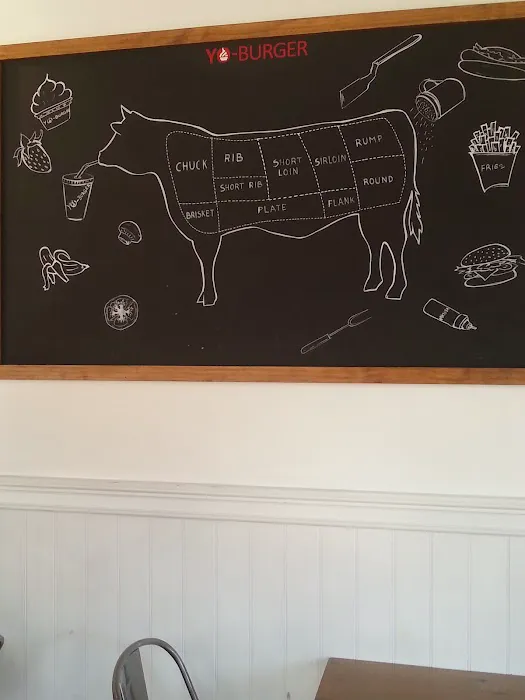 YO-BURGER
YO-BURGER
CHUCK
RIB
SHORT
LOIN
SIRLOIN
RUMP
SHORT RIB
ROUND
BRISKET
PLATE
FLANK
FRIES